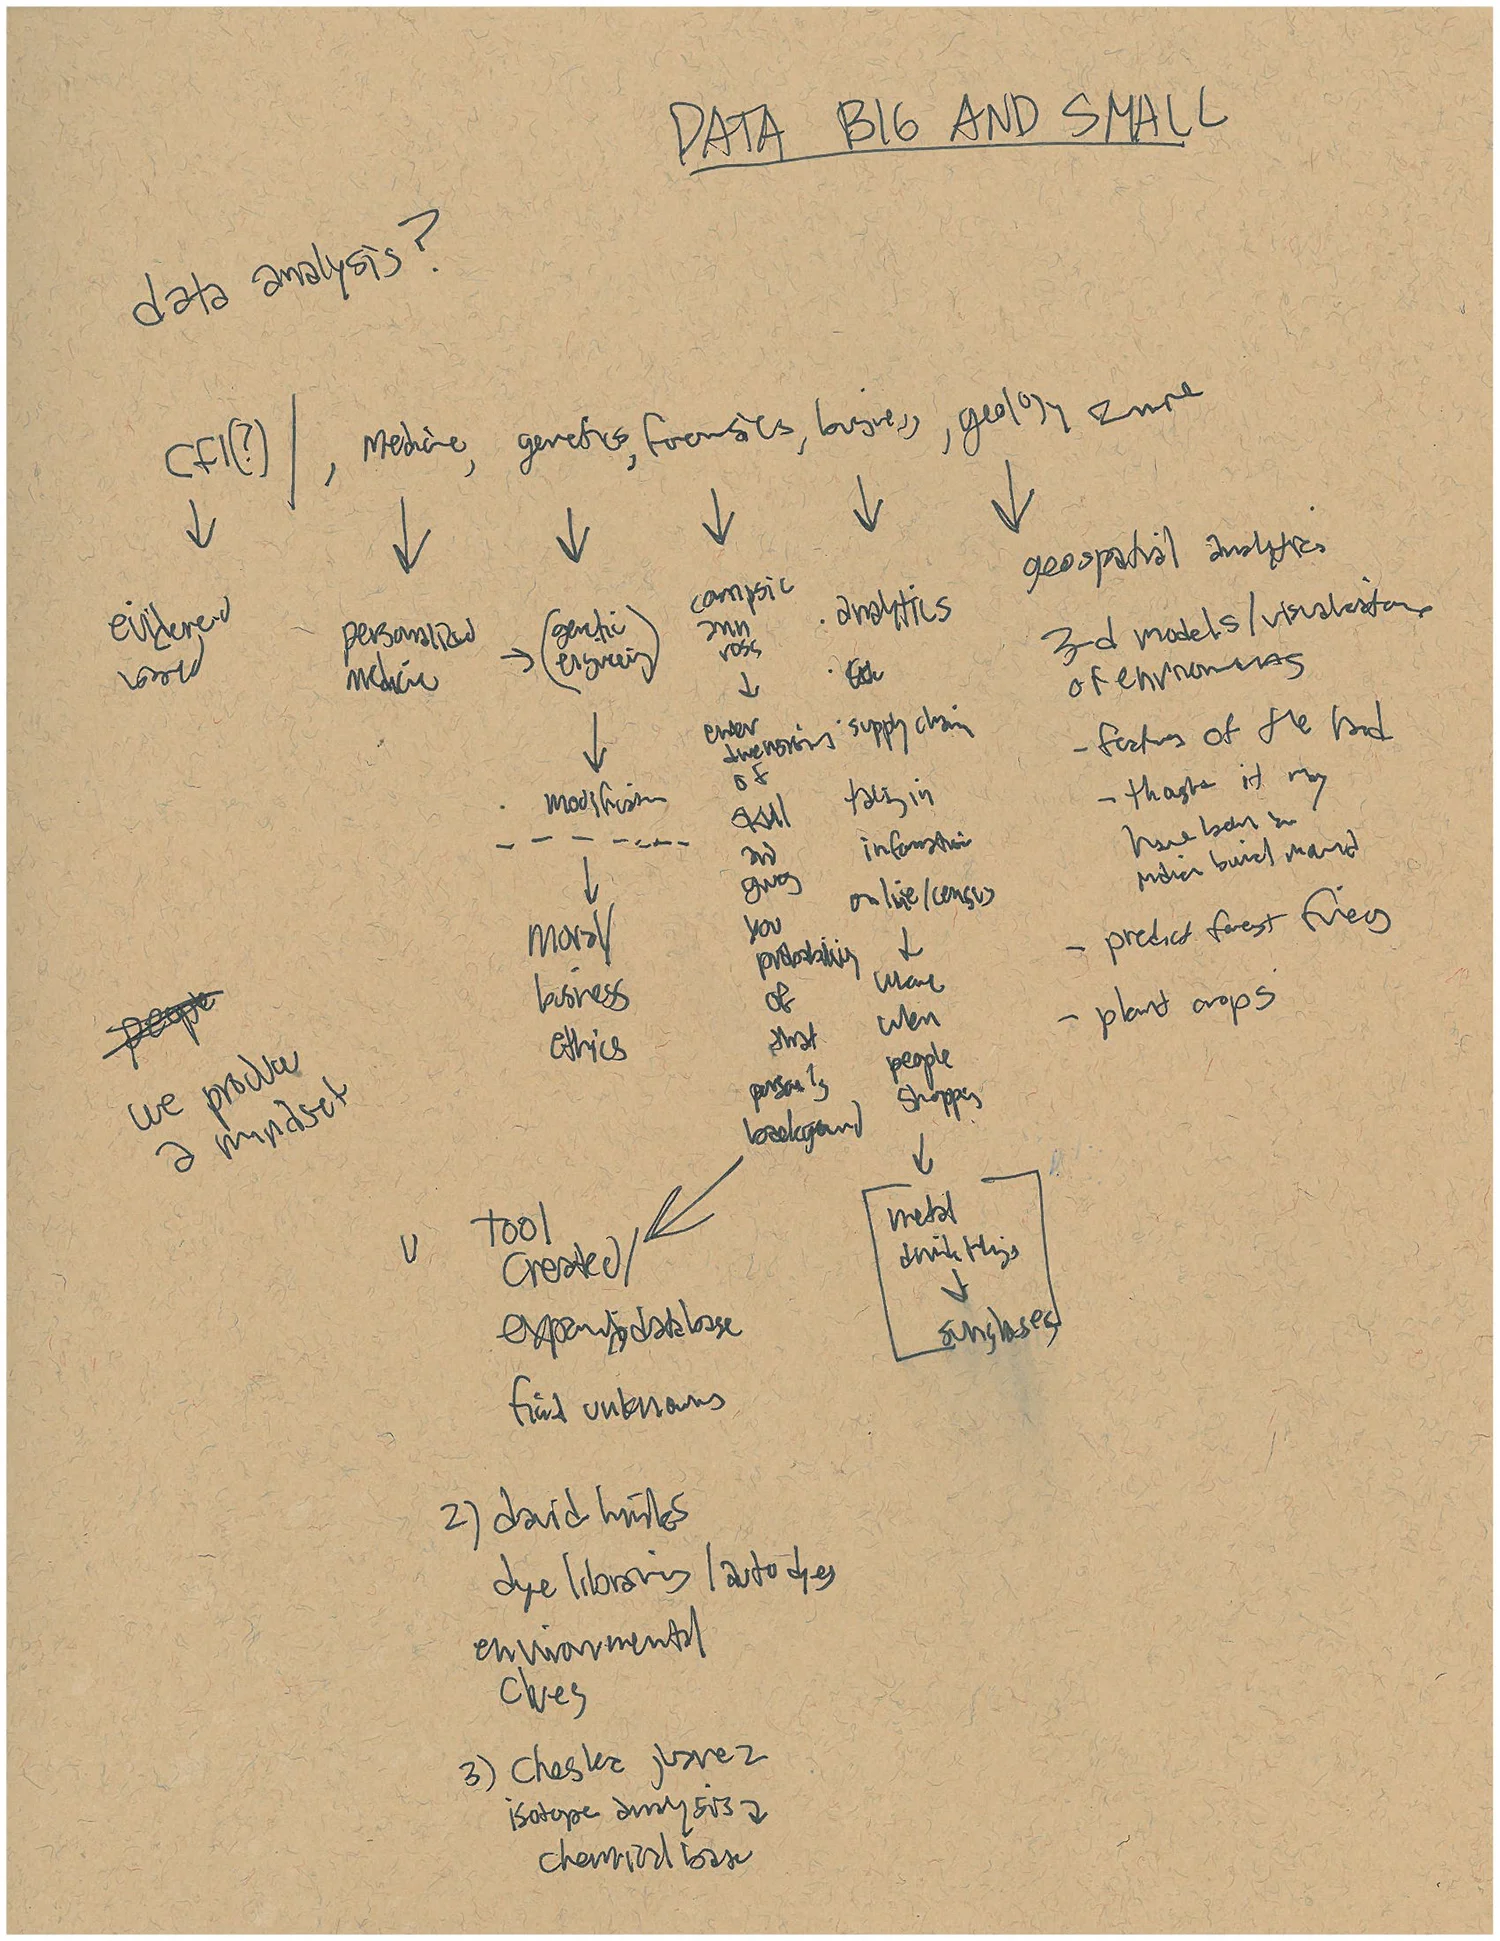 DATA BIG AND SMALL
data analysis?
CFI(?)/, Medicine, genetics, forensics, business, geology
evidence
based
personalized
medicine
→ (genetic
engineering)
modification
moral/
business
ethics
ann
ross
enter
dimensions
of
skull
and
gives
you
probability
of
that
person's
background
· analytics
· supply chain
taking in
information
online/census
when
people
shopping
metal
sunglasses
geospatial analytics
3-d models/visualizations
of environments
- features of the land
- thought it may
have been an
indian burial mound
- predict forest fires
- plant crops
people
we produce
a mindset
tool
created/
expanding database
find unknowns
2) david hinks
dye libraries/auto dyes
environmental
clues
3) Cheska juarez
isotope analysis
chemical base